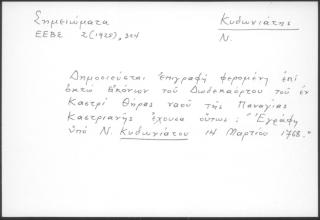 Σημειώματα
Κυδωνιάτης
ΕΕΒΣ 2(1925), 324
Ν.
Δημοσιεύεται ἐπιγραφή φερομένη ἐπί
ὀκτώ εἰκόνων τοῦ Δωδεκαόρτου τοῦ ἐν
Καστρί Θήρας ναοῦ τῆς Παναγίας
Καστριανῆς ἔχουσα οὕτως: "Ἐγράφη
ὑπό Ν. Κυδωνιάτου 14 Μαρτίου 1768."